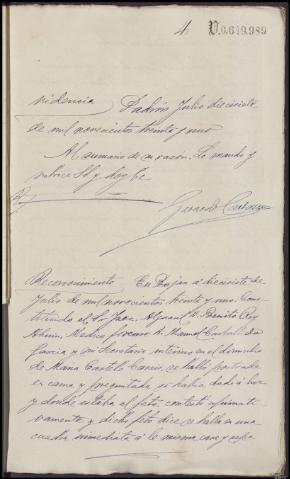 4 V.0.619.989
videncia Padrón Julio diecisiete
de mil novecientos treinta y uno
Al sumario de su razón. Lo mando y
rubrica Sª y doy fe
Gerardo
Reconocimiento En á diecisiete de
Julio de mil novecientos treinta y uno. Cons
tituido el Sr Juez D. Benito Rey
Médico forense D. Manuel
García y mi Secretario interino en el domicilio
de Maria Castelo García, se halla postrada
en cama y preguntada si había dado a luz
y donde estaba el feto, contestó afirma ti
vamente y dicho feto dice se halla en una
cuadra inmediata á la misma casa y